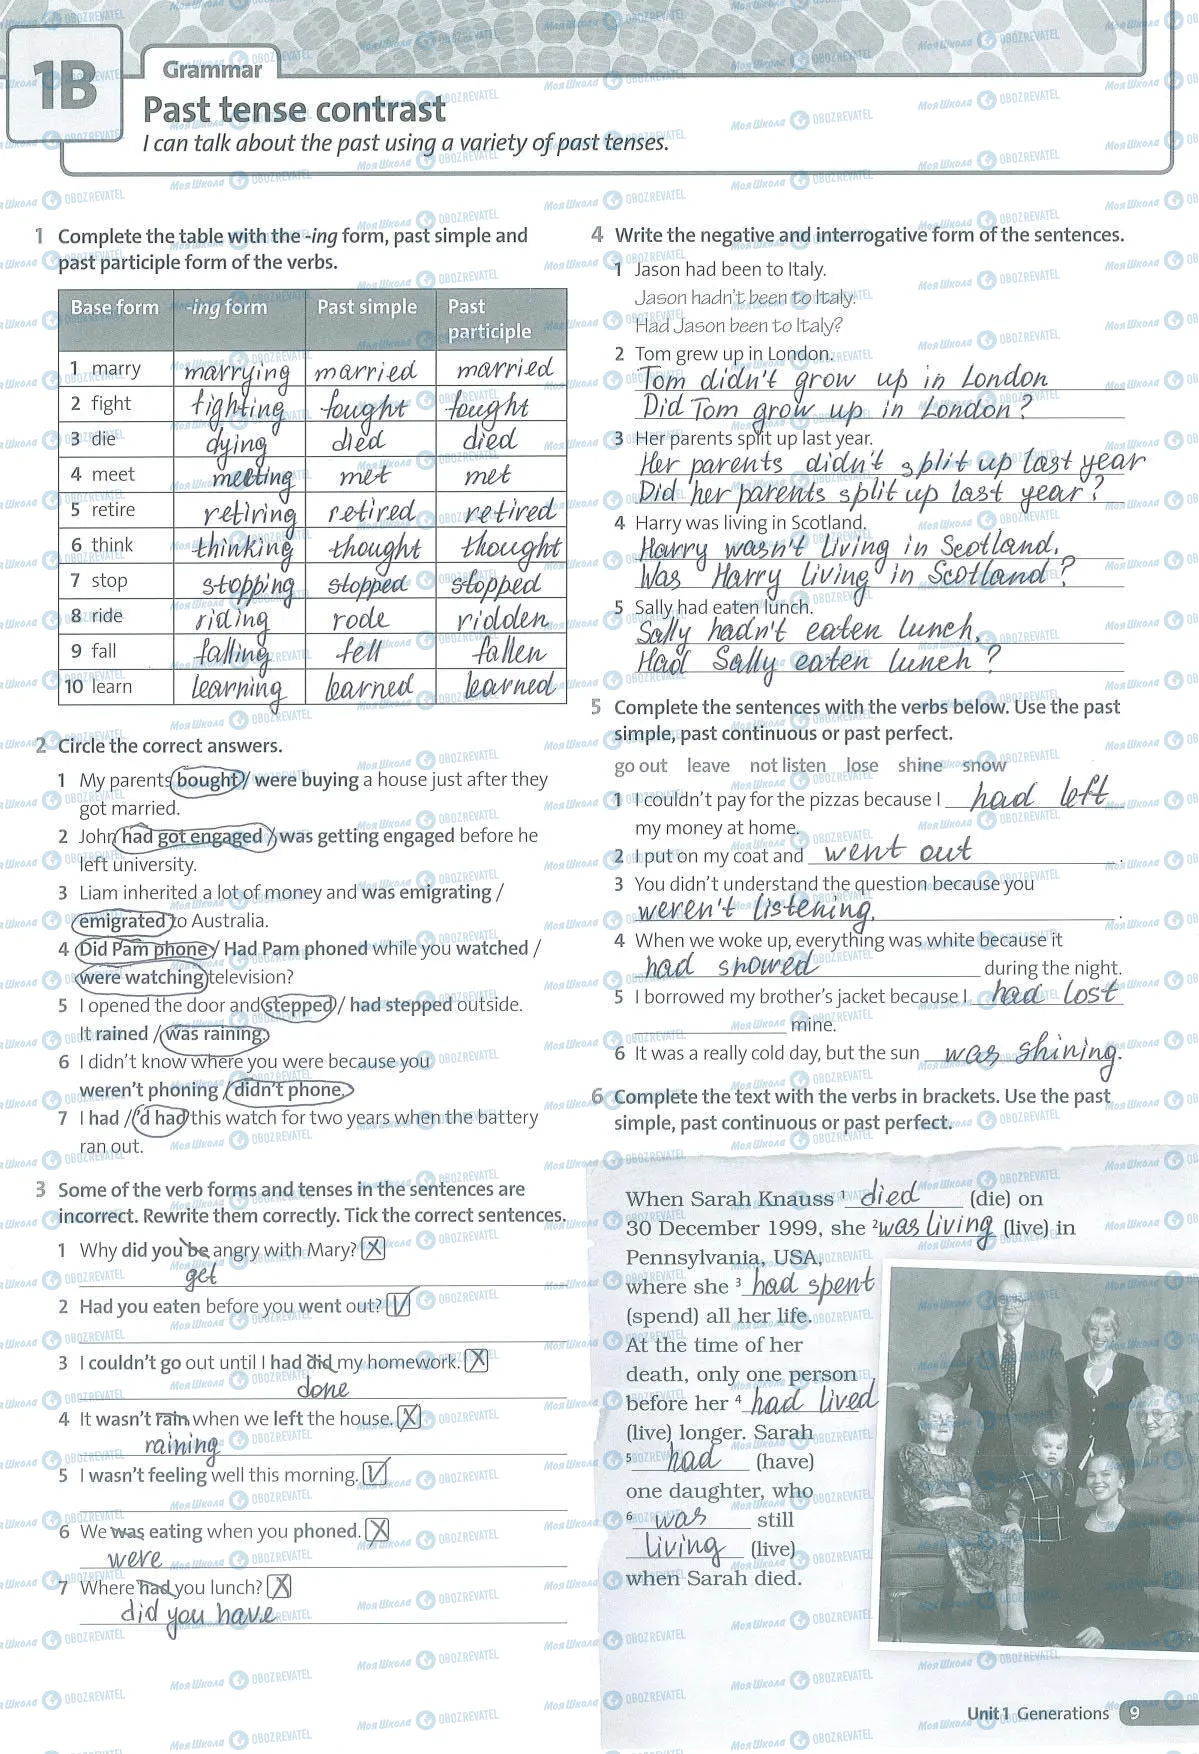 1B
Grammar
Past tense contrast
I can talk about the past using a variety of past tenses.
1 Complete the table with the -ing form, past simple and
past participle form of the verbs.
Base form -ing form Past simple Past
participle
1 marry marrying married married
2 fight fighting fought fought
3 die dying died died
4 meet meeting met met
5 retire retiring retired retired
6 think thinking thought thought
7 stop stopping stopped stopped
8 ride riding rode ridden
9 fall falling fell fallen
10 learn learning learned learned
2 Circle the correct answers.
1 My parents bought / were buying a house just after they
got married.
2 John had got engaged / was getting engaged before he
left university.
3 Liam inherited a lot of money and was emigrating /
emigrated to Australia.
4 Did Pam phone / Had Pam phoned while you watched /
were watching television?
5 I opened the door and stepped / had stepped outside.
It rained / was raining.
6 I didn't know where you were because you
weren't phoning / didn't phone.
7 I had / 'd had this watch for two years when the battery
ran out.
3 Some of the verb forms and tenses in the sentences are
incorrect. Rewrite them correctly. Tick the correct sentences.
1 Why did you be angry with Mary? X
get
2 Had you eaten before you went out? ✓
3 I couldn't go out until I had did my homework. X
done
4 It wasn't rain when we left the house. X
raining
5 I wasn't feeling well this morning. ✓
6 We was eating when you phoned. X
were
7 Where had you lunch? X
did you have
4 Write the negative and interrogative form of the sentences.
1 Jason had been to Italy.
Jason hadn't been to Italy.
Had Jason been to Italy?
2 Tom grew up in London.
Tom didn't grow up in London
Did Tom grow up in London?
3 Her parents split up last year.
Her parents didn't split up last year
Did her parents split up last year?
4 Harry was living in Scotland.
Harry wasn't living in Scotland.
Was Harry living in Scotland?
5 Sally had eaten lunch.
Sally hadn't eaten lunch.
Had Sally eaten lunch?
5 Complete the sentences with the verbs below. Use the past
simple, past continuous or past perfect.
go out leave not listen lose shine snow
1 I couldn't pay for the pizzas because I had left
my money at home.
2 I put on my coat and went out .
3 You didn't understand the question because you
weren't listening. .
4 When we woke up, everything was white because it
had snowed during the night.
5 I borrowed my brother's jacket because I had lost
mine.
6 It was a really cold day, but the sun was shining.
6 Complete the text with the verbs in brackets. Use the past
simple, past continuous or past perfect.
When Sarah Knauss 1 died (die) on
30 December 1999, she 2 was living (live) in
Pennsylvania, USA,
where she 3 had spent
(spend) all her life.
At the time of her
death, only one person
before her 4 had lived
(live) longer. Sarah
5 had (have)
one daughter, who
6 was still
living (live)
when Sarah died.
Unit 1 Generations 9
МояШкола OBOZREVATEL